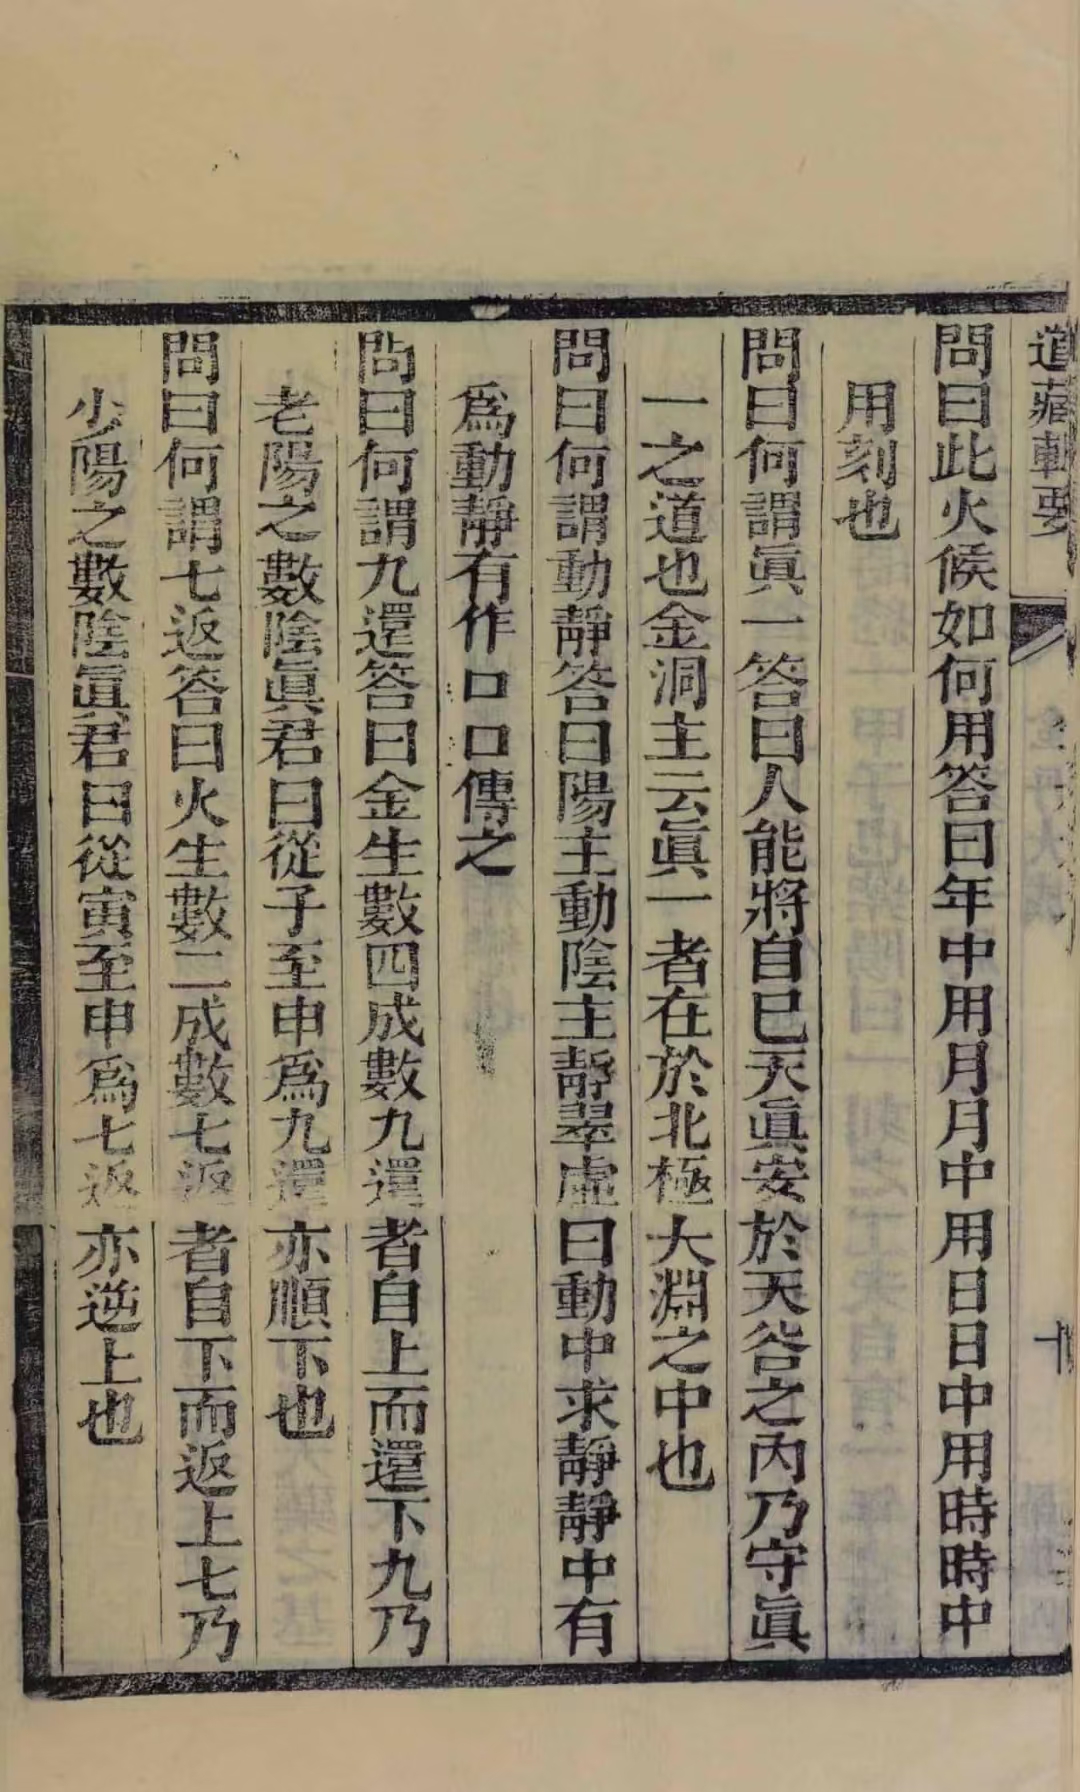 道藏輯要
十
問曰此火候如何用答曰年中用月月中用日日中用時時中
用刻也
問曰何謂眞一答曰人能將自已天眞安於天谷之內乃守眞
一之道也金洞主云眞一者在於北極大淵之中也
問曰何謂動靜答曰陽主動陰主靜翠虛曰動中求靜靜中有
爲動靜有作口口傳之
問曰何謂九還答曰金生數四成數九還者自上而還下九乃
老陽之數陰眞君曰從子至申爲九還亦順下也
問曰何謂七返答曰火生數二成數七返者自下而返上七乃
少陽之數陰眞君曰從寅至申爲七返亦逆上也